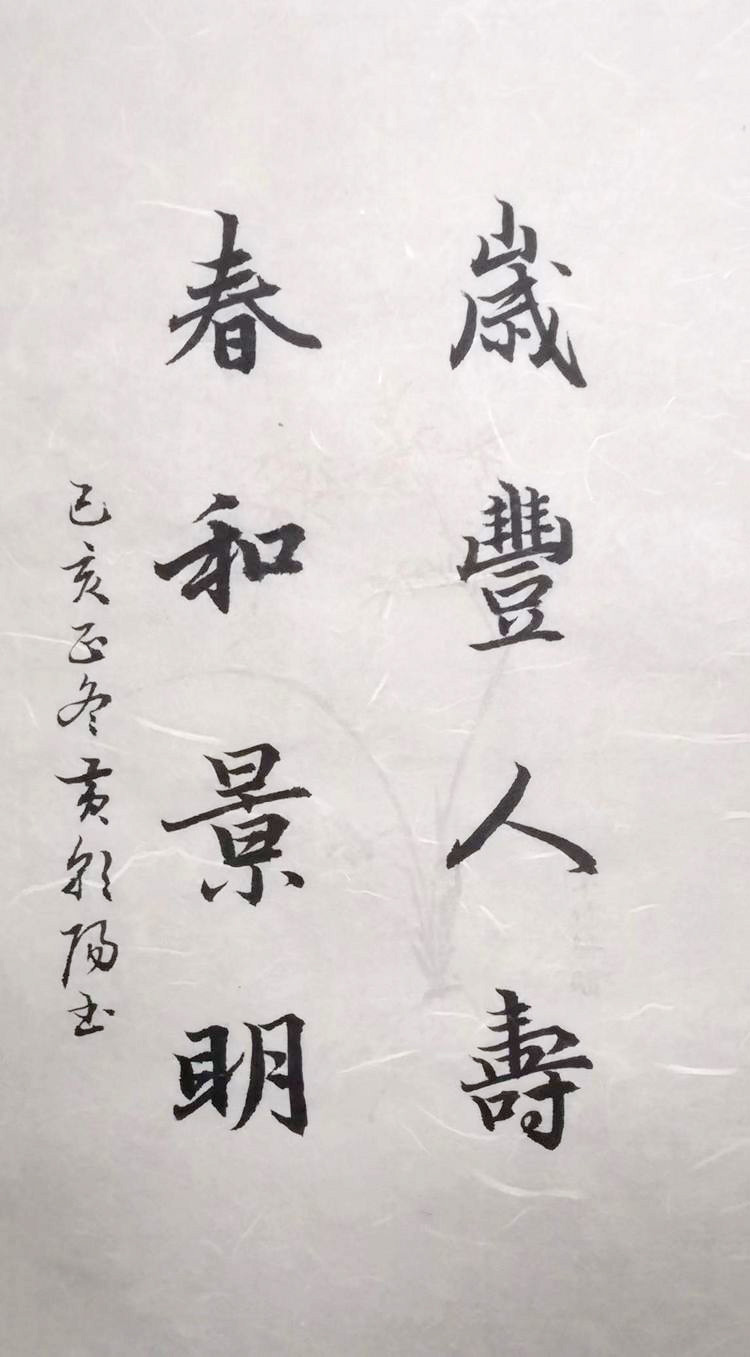 歲豐人壽
春和景明
己亥正冬黄朝陽书